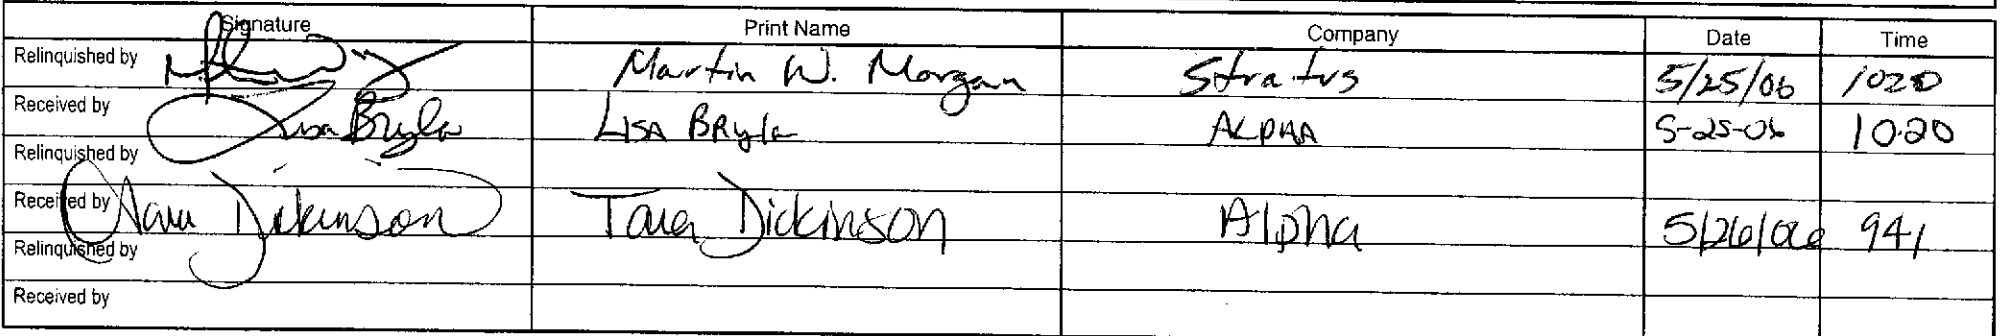 Signature Print Name Company Date Time
Relinquished by Martin W. Morgan Stratus 5/25/06 1020
Received by Lisa Bryla LISA BRyla ALPHA 5-25-06 10:20
Relinquished by
Received by Tara Dickinson Tara Dickinson Alpha 5/26/06 941
Relinquished by
Received by